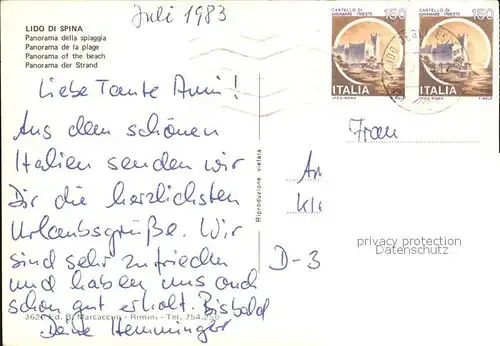 Juli 1983
LIDO DI SPINA
Panorama della spiaggia
Panorama de la plage
Panorama of the beach
Panorama der Strand
CASTELLO DI MIRAMARE TRIESTE 150
ITALIA
CASTELLO DI MIRAMARE TRIESTE 150
ITALIA
Liebe Tante Anni!
Aus dem schönen
Italien senden wir
Dir die herzlichsten
Urlaubsgrüße. Wir
sind sehr zufrieden
und haben uns auch
schon gut erholt. Bisbald
Deine Hemminger
Riproduzione vietata
Frau
D-3
privacy protection
Datenschutz
Ed. B. Marcaccini - Rimini - Tel. 754.250